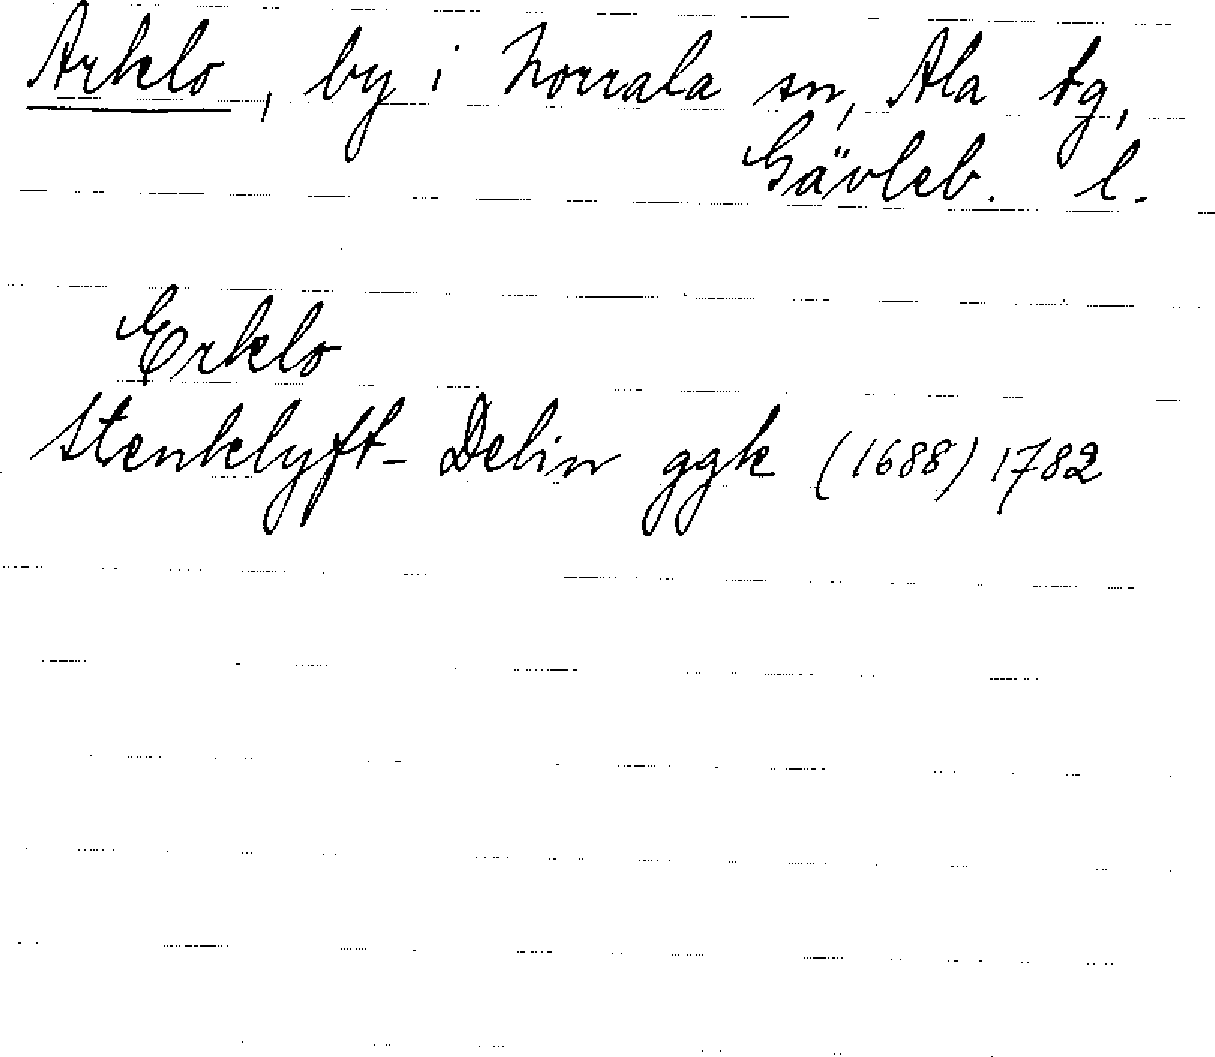 Arklo, by i Norrala sn, Ala tg,
Gävleb. l.
Erklo
Stenklyft- Delin ggk (1688) 1782